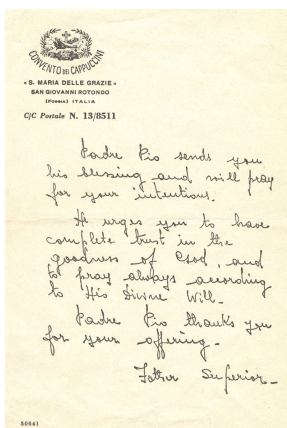 CONVENTO DEI CAPPUCCINI
« S. MARIA DELLE GRAZIE »
SAN GIOVANNI ROTONDO
(FOGGIA) ITALIA
C/C Postale N. 13/8511
Padre Pio sends you
his blessing and will pray
for your intentions.
He urges you to have
complete trust in the
goodness of God, and
to pray always according
to His Divine Will.
Padre Pio thanks you
for your offering.
Father Superior.
50641